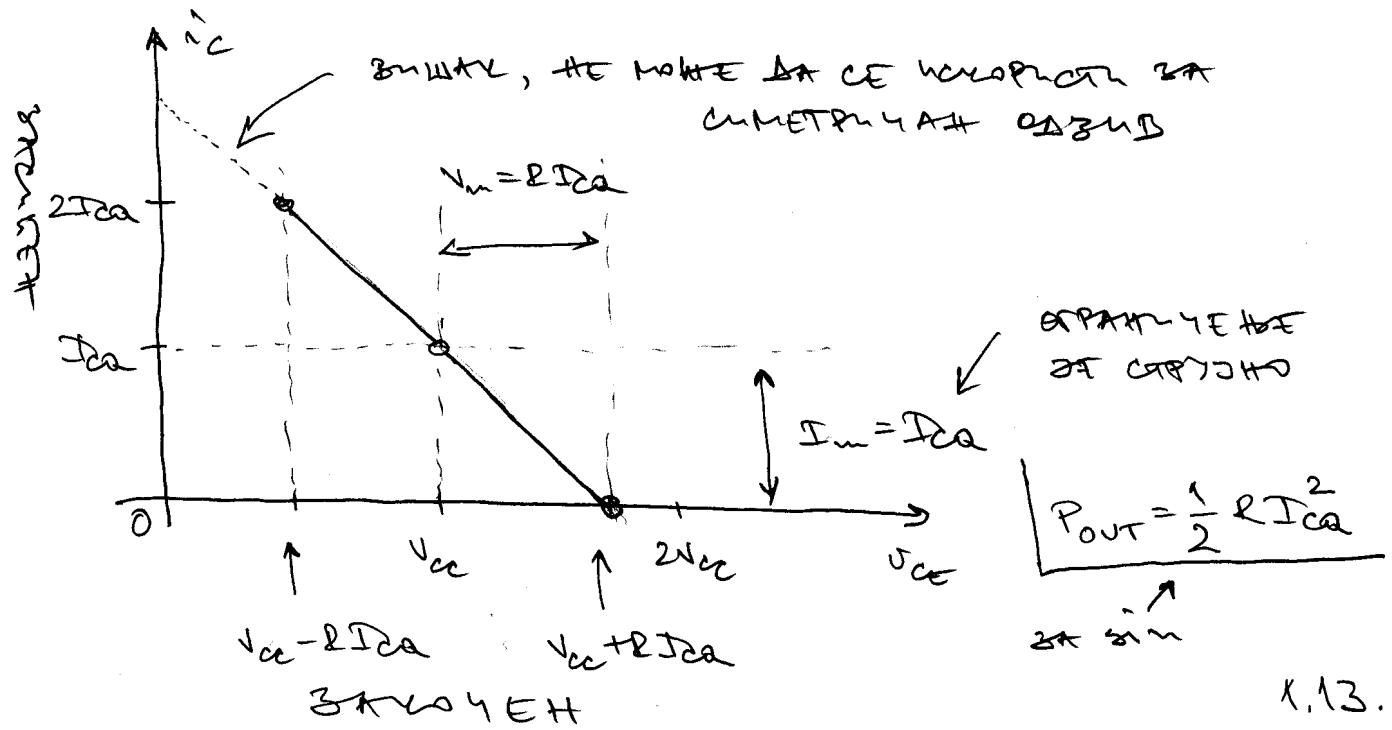 i_C
ВИШАК, НЕ МОЖЕ ДА СЕ ИСКОРИСТИ ЗА
СИМЕТРИЧАН ОДЗИВ
V_m = R I_CQ
2I_CQ
I_CQ
ОГРАНИЧЕЊЕ
ЈЕ СТРУЈНО
I_m = I_CQ
P_OUT = 1/2 R I_CQ^2
0
V_CC
2V_CC
v_CE
ЗА sin
V_CC - R I_CQ
V_CC + R I_CQ
ЗАКОЧЕН
1.13.